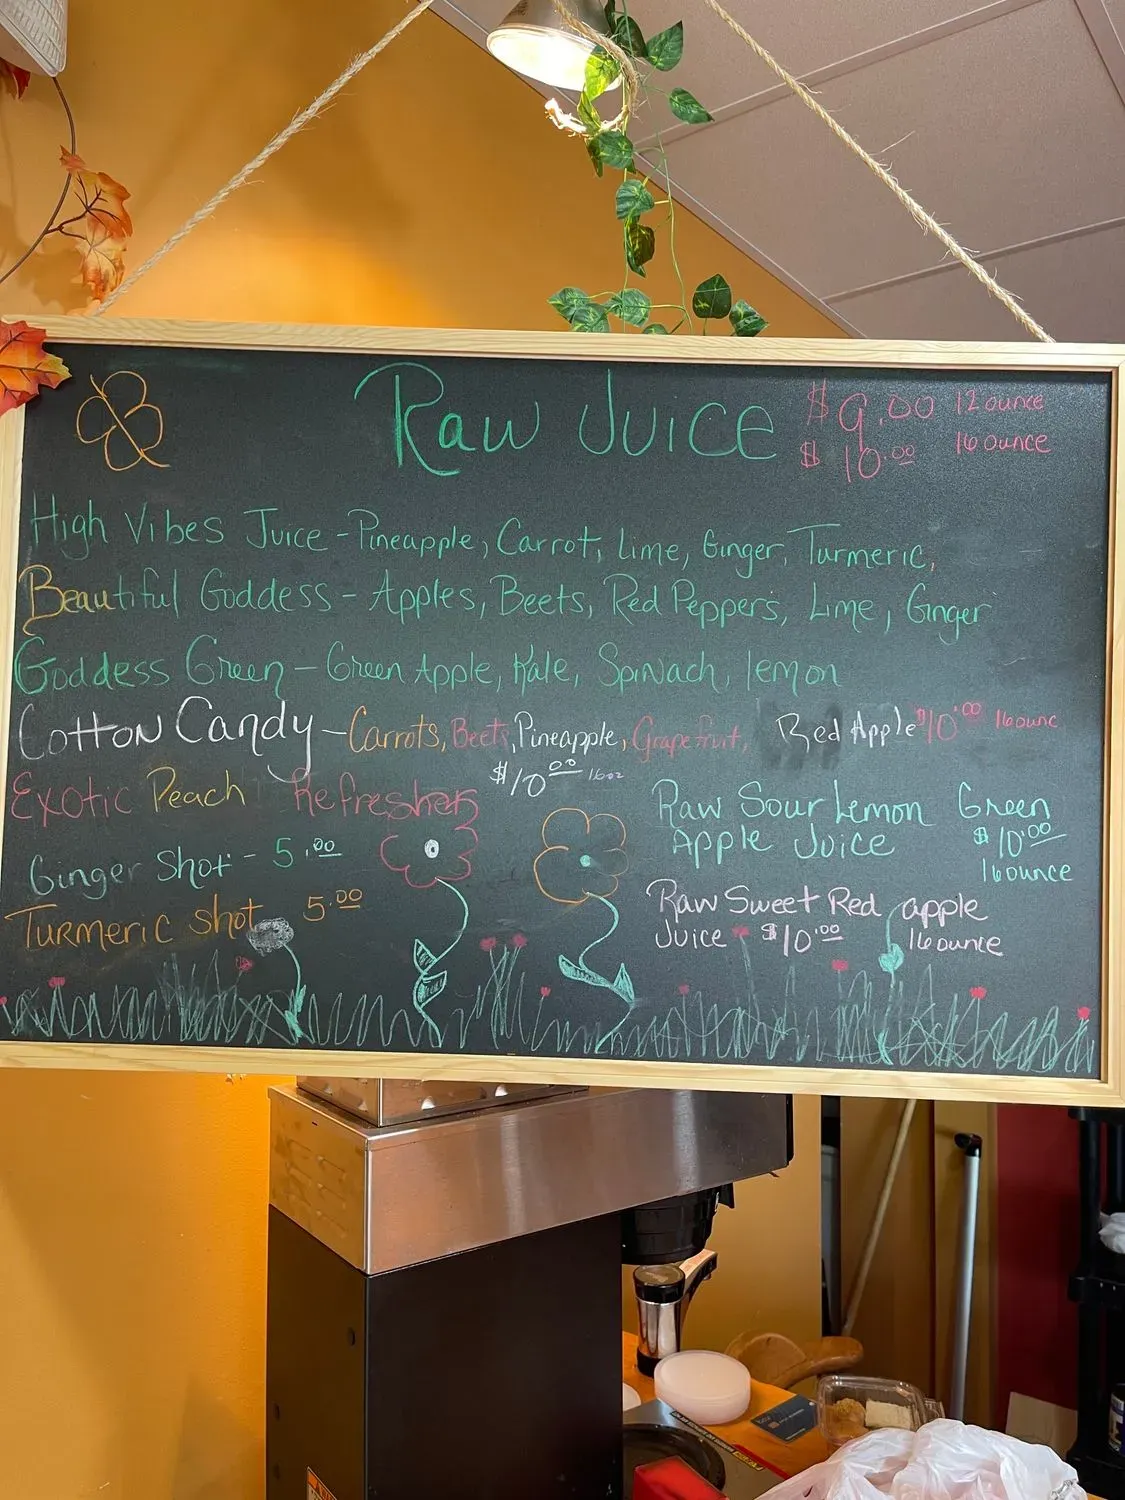 Raw Juice $9.00 12 ounce
$10.00 16 ounce
High Vibes Juice - Pineapple, Carrot, Lime, Ginger, Turmeric,
Beautiful Goddess - Apples, Beets, Red Peppers, Lime, Ginger
Goddess Green - Green Apple, Kale, Spinach, lemon
Cotton Candy - Carrots, Beets, Pineapple, Grapefruit, Red Apple $10.00 16ounc
Exotic Peach Refresher $10.00 16oz
Ginger Shot - 5.00
Turmeric Shot 5.00
Raw Sour Lemon Green
Apple Juice $10.00
16ounce
Raw Sweet Red apple
Juice $10.00 16ounce